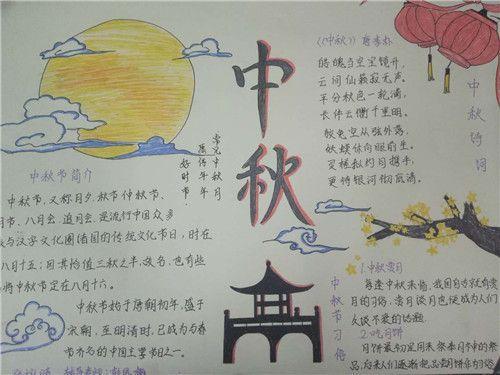 中秋
《中秋》唐李朴
皓魄当空宝镜升，
云间仙籁寂无声。
平分秋色一轮满，
长伴云衢千里明。
狡兔空从弦外落，
妖蟆休向眼前生。
灵槎拟约同携手，
更待银河彻底清。
中秋诗词
中秋节简介
中秋节，又称月夕、秋节、仲秋节、
月节、八月会、追月会、是流行中国众多
族与汉字文化圈诸国的传统文化节日，时在
八月十五；因其恰值三秋之半，故名，也有些
将中秋节定在八月十六。
中秋节始于唐朝初年，盛于
宋朝，至明清时，已成为与春
节齐名的中国主要节日之一。
中秋节习俗
1.中秋赏月
每逢中秋来临，我国自古就有赏
月的习俗，赏月谈月也便成为人们
久谈不衰的话题。
2.吃月饼
月饼最初是用来祭奉月神的祭
品，后来人们逐渐把品尝月饼作为